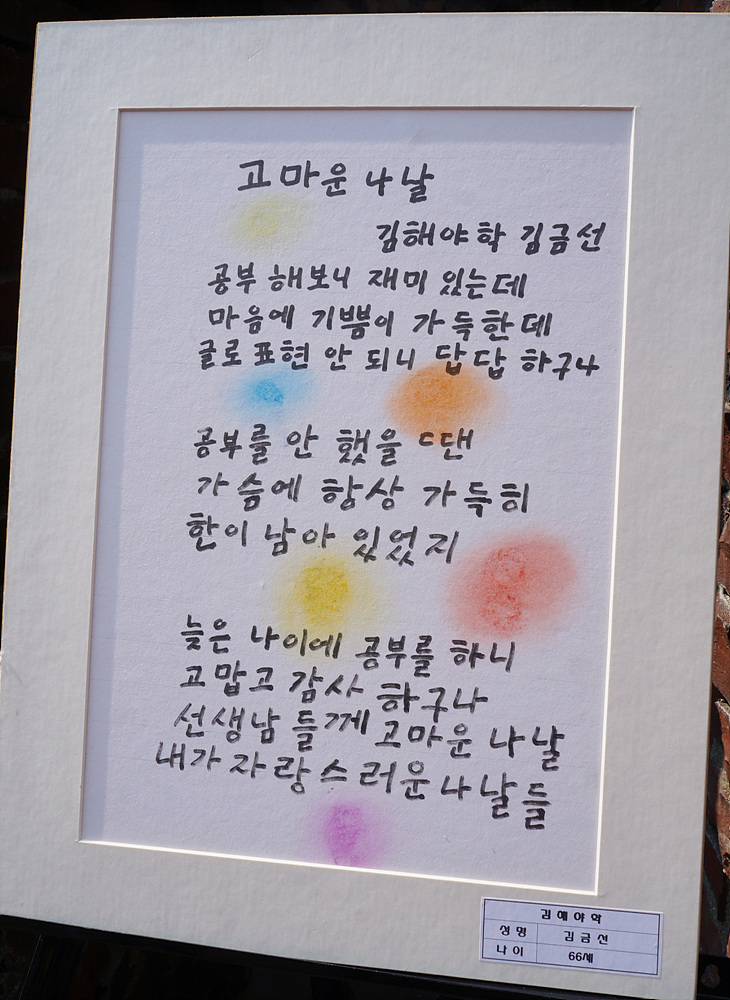 고마운 나날
김해야학 김금선
공부 해보니 재미 있는데
마음에 기쁨이 가득한데
글로 표현 안 되니 답답 하구나
공부를 안 했을 ㄷ댄
가슴에 항상 가득히
한이 남아 있었지
늦은 나이에 공부를 하니
고맙고 감사 하구나
선생남 들께 고마운 나날
내가 자랑스러운 나날들
김해야학
성명 김금선
나이 66세